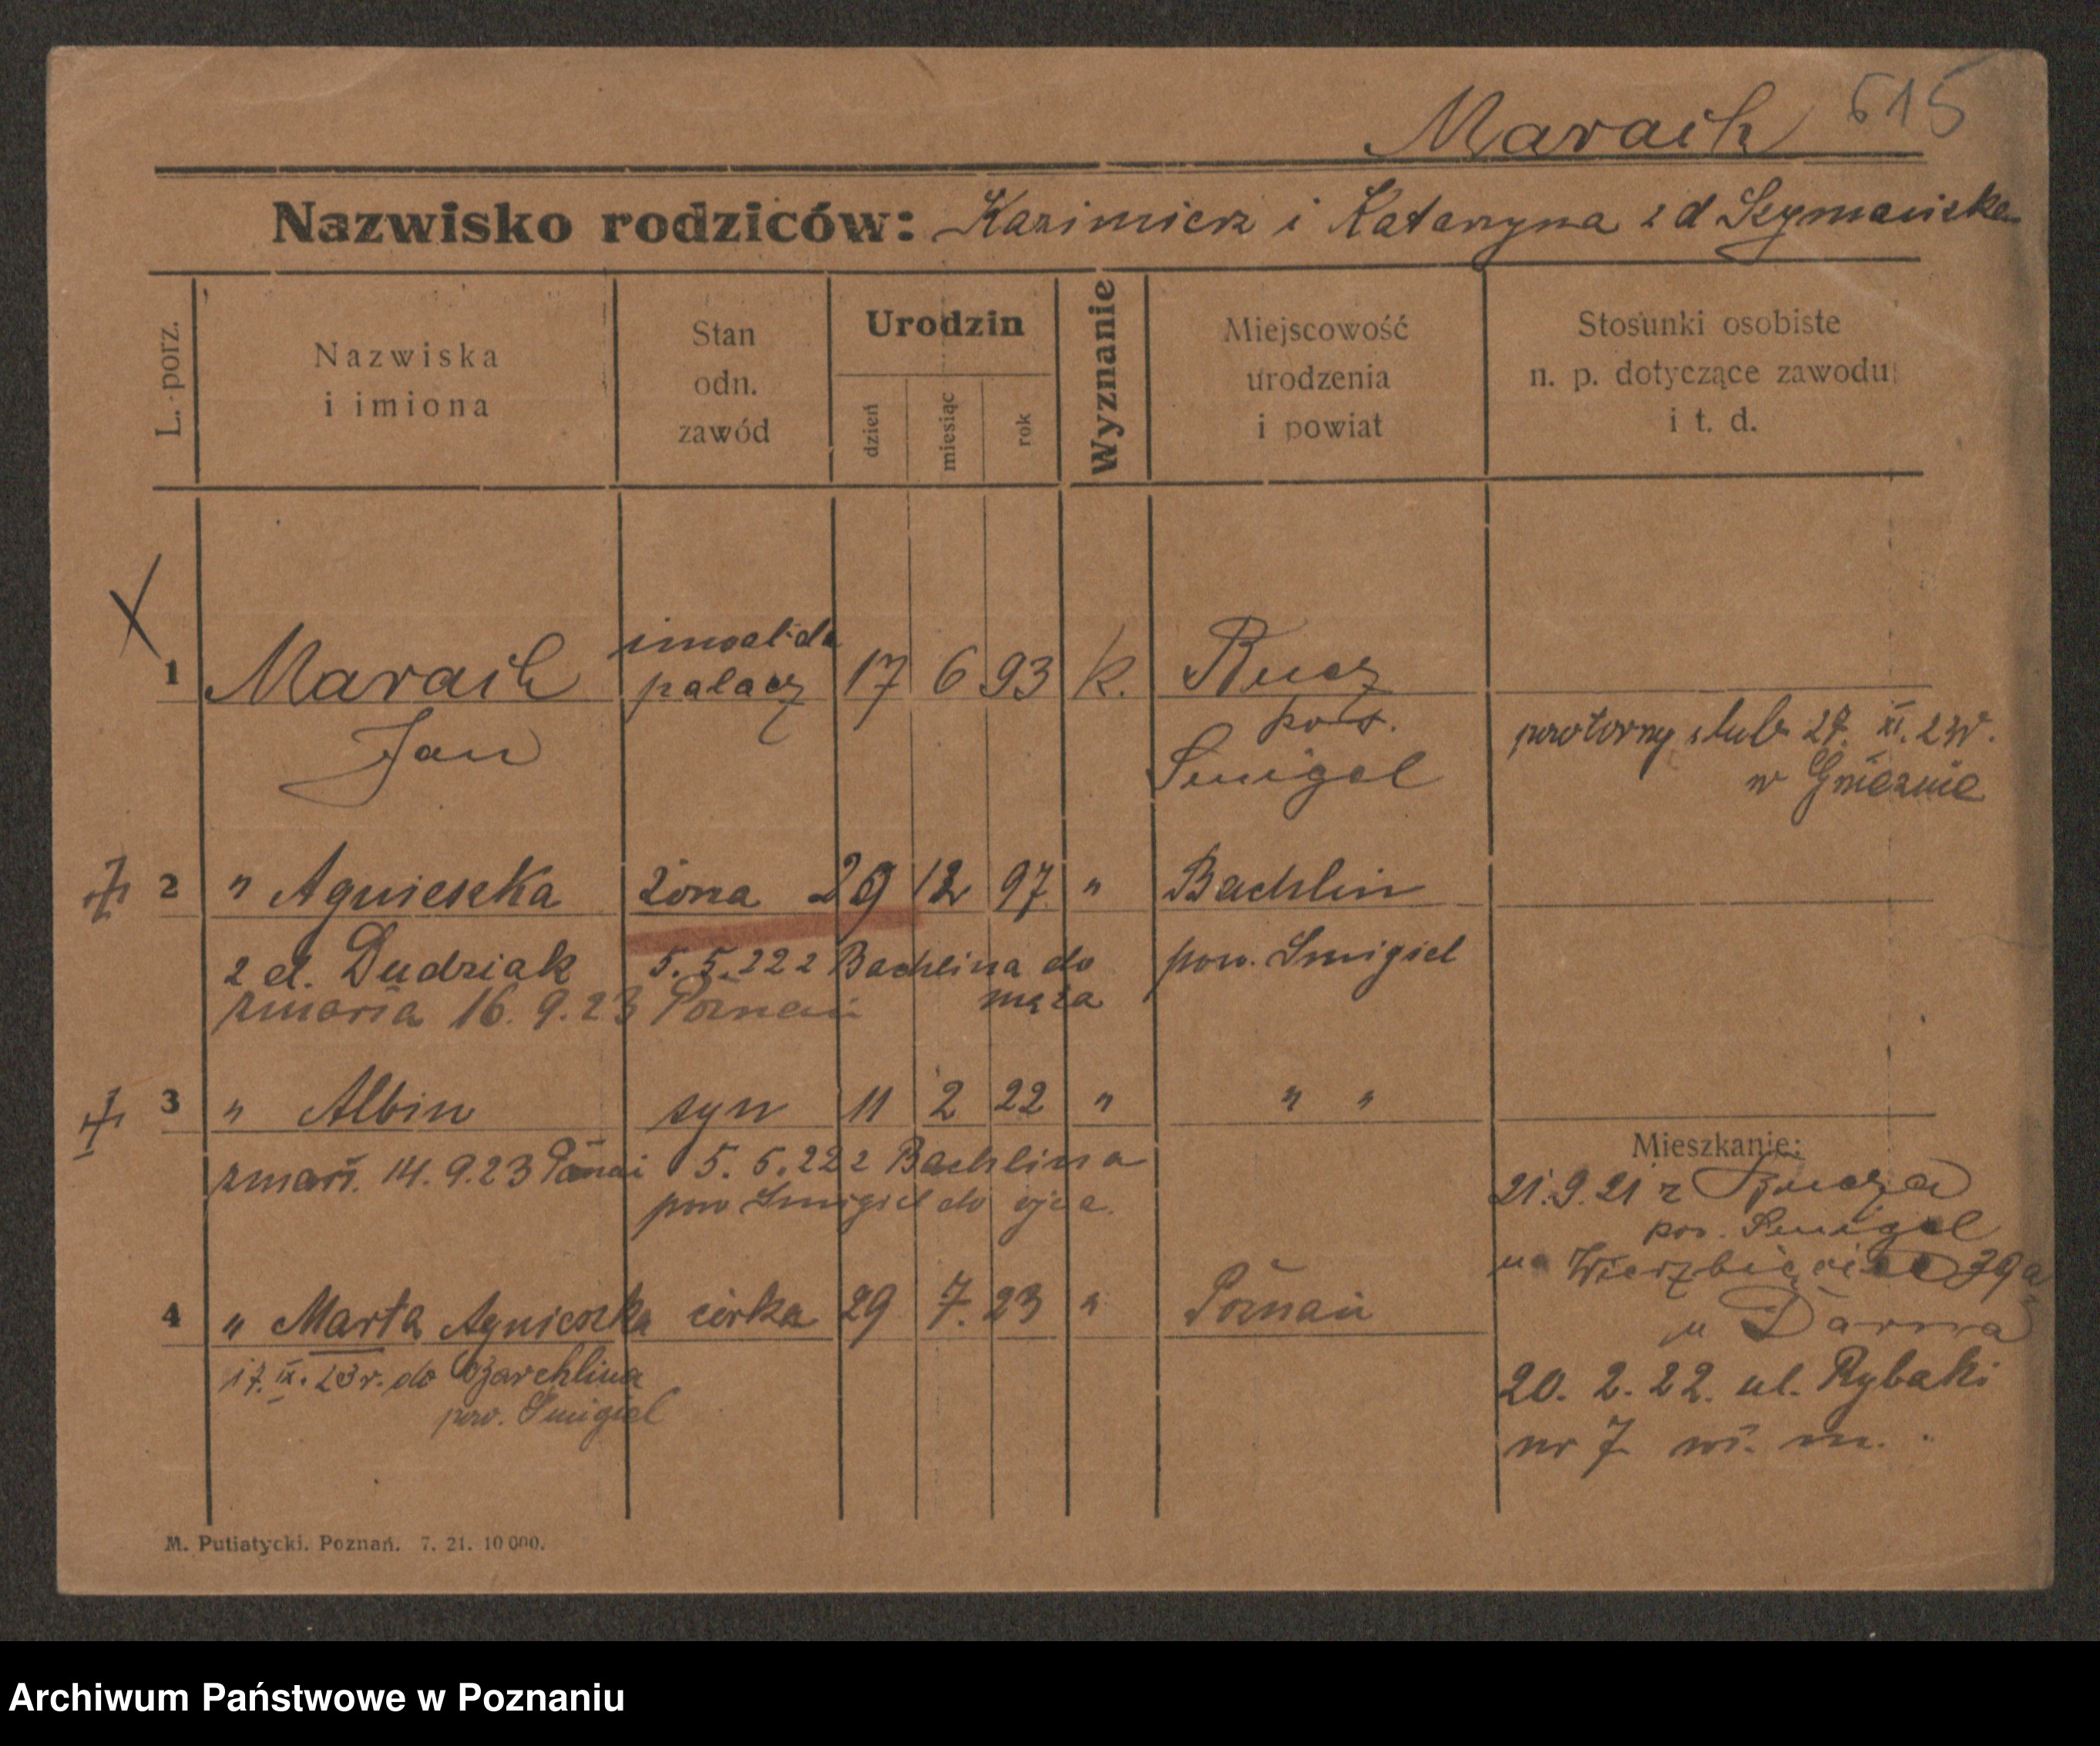 Maraih 615
Nazwisko rodziców: Kazimierz i Katarzyna z d Szymańska
L. porz.
Nazwiska
i imiona
Stan
odn.
zawód
Urodzin
dzień
miesiąc
rok
Wyznanie
Miejscowość
urodzenia
i powiat
Stosunki osobiste
n. p. dotyczące zawodu
i t. d.
1 Maraih inwalida palacz 17 6 93 k. Bucz
Jan pow. Smigel
powtorny slub 27. XI. 23 r.
w Gnieznie
2 " Agnieszka żona 29 12 97 " Bachlin
z d. Dudziak 5.5.22 z Bachlina do pow. Smigiel
zmarła 16.9.23 Poznań męża
3 " Albin syn 11 2 22 " " "
zmarł. 14.9.23 Poznań 5.5.22 z Bachlina
pow Smigiel do ojca.
4 " Marta Agnieszka córka 29 7. 23 " Poznań
17. IX. 23 r. do
pow. Smigiel
Mieszkanie:
21.9.21 z Bucza
pow. Smigel
na Wierzbięcice 39a
u
20. 2. 22. ul. Rybaki
nr 7 m.
M. Putiatycki. Poznań. 7. 21. 10 000.
Archiwum Państwowe w Poznaniu